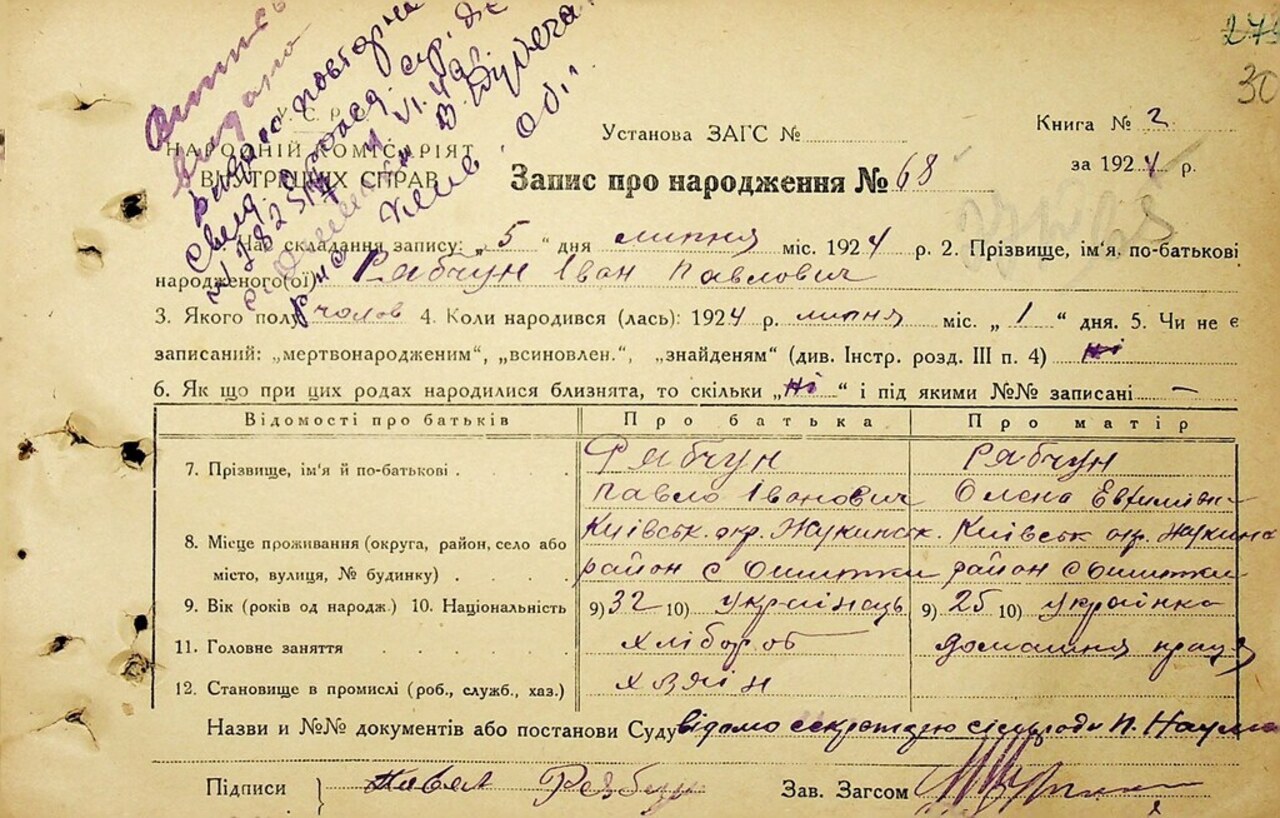 274
30
У. С. Р.
НАРОДНІЙ КОМІСАРІЯТ
ВНУТРІШНІХ СПРАВ
видано повторне
свид.
Установа ЗАГС №
Книга № 2
за 1924 р.
Запис про народження № 68
1. Час складання запису: „ 5 “ дня липня міс. 1924 р. 2. Прізвище, ім'я, по-батькові
народженого(ої) Рябчун Іван Павлович
3. Якого полу чолов 4. Коли народився (лась): 1924 р. липня міс. „ 1 “ дня. 5. Чи не є
записаний: „мертвонародженим“, „всиновлен.“, „знайденям“ (див. Інстр. розд. III п. 4) ні
6. Як що при цих родах народилися близнята, то скільки „ ні “ і під якими №№ записані —
Відомості про батьків Про батька Про матір
7. Прізвище, ім'я й по-батькові Рябчун Рябчун
Павло Іванович Олена
8. Місце проживання (округа, район, село або Київськ. окр. Жукинск. Київськ окр. Жукинск
місто, вулиця, № будинку) район с Ошитки район с Ошитки
9. Вік (років од народж.) 10. Національність 9) 32 10) українець 9) 25 10) українка
11. Головне заняття хлібороб домашня праця
12. Становище в промислі (роб., служб., хаз.) хазяїн
Назви и №№ документів або постанови Суду відомо секретарю сільради П.
Підписи Павел Рябчун Зав. Загсом